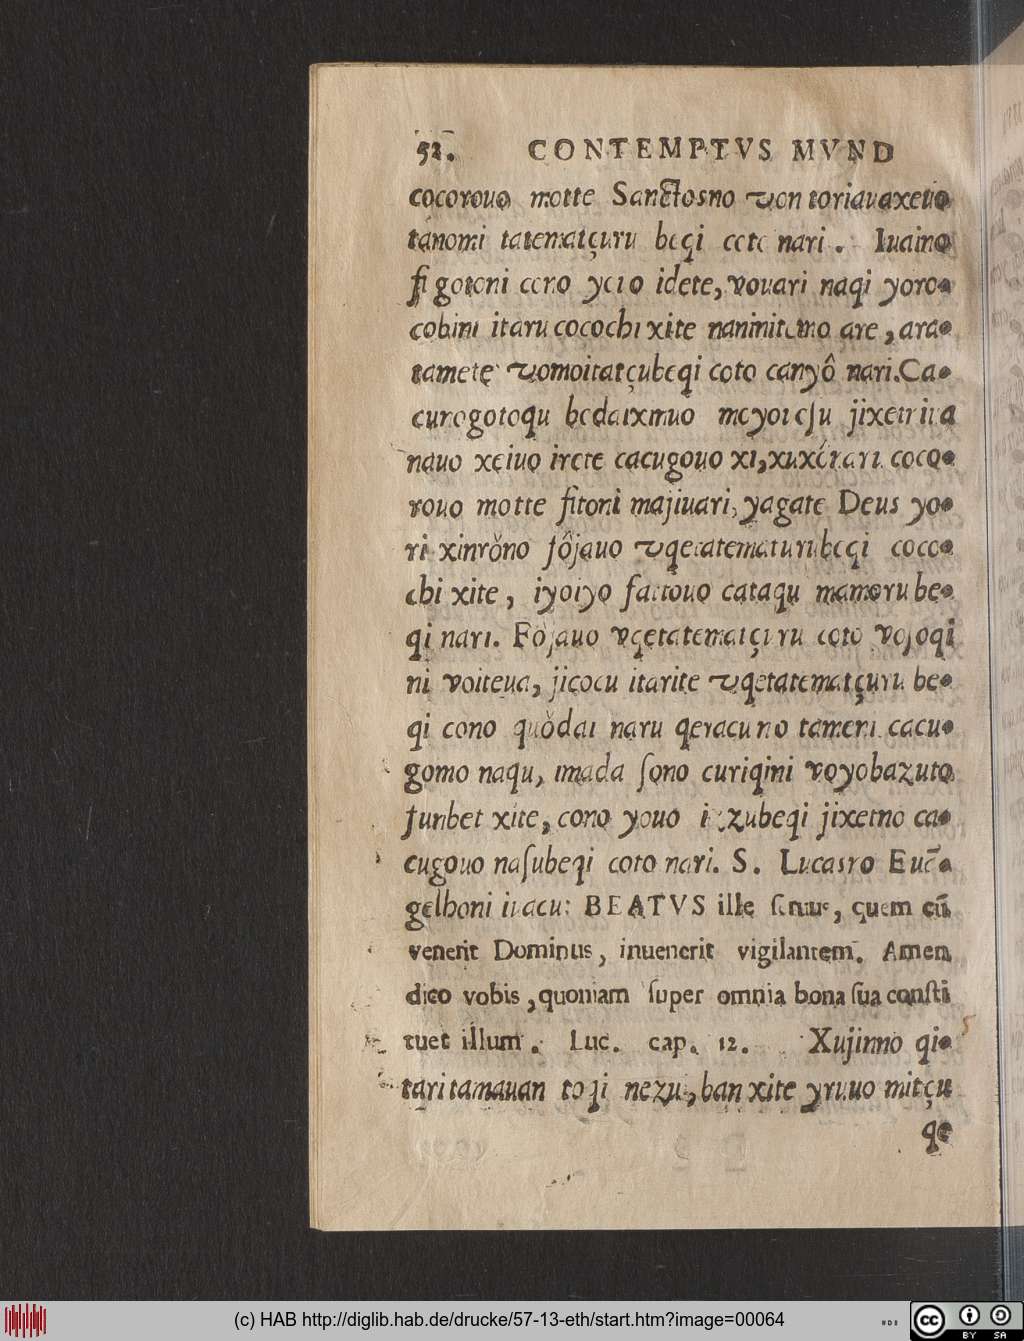 52. CONTEMPTVS MVND
cocorouo motte Sanctosno von toriauaxeuo
tanomi tatematçuru beqi coto nari. Iuaino
ſi gotoni cono yeio idete, vouari naqi yoro-
cobini itaru cocochi xite naninitemo are, ara-
tamete vomoitatçubeqi coto canyô nari. Ca-
curogotoqu
nauo xeiuo irete cacugouo xi, coco-
rouo motte ſitoni majiuari, yagate Deus yo-
ri xinrŏno fôjauo vqetatematçurubeqi cocco-
chi xite, iyoiyo fattouo cataqu mamoru be-
qi nari. Fôjauo vqetatematçuru coto vosoqi
ni voiteua, jicocu itarite vqetatematçuru be-
qi cono quŏdai naru qeracu no tameni cacu-
gomo naqu, imada ſono curiqini voyobazuto
funbet xite, cono youo izzubeqi jixetno ca-
cugouo naſubeqi coto nari. S. Lucasno Euã-
gelhoni iuacu: BEATVS ille ſeruus, quem cũ
venerit Dominus, inuenerit vigilantem. Amen
dico vobis, quoniam ſuper omnia bona ſua conſti
tuet illum. Luc. cap. 12. Xujinno qi-
tari tamauan toqi nezu, ban xite yruuo mitçu
qe
(c) HAB http://diglib.hab.de/drucke/57-13-eth/start.htm?image=00064
cc BY SA